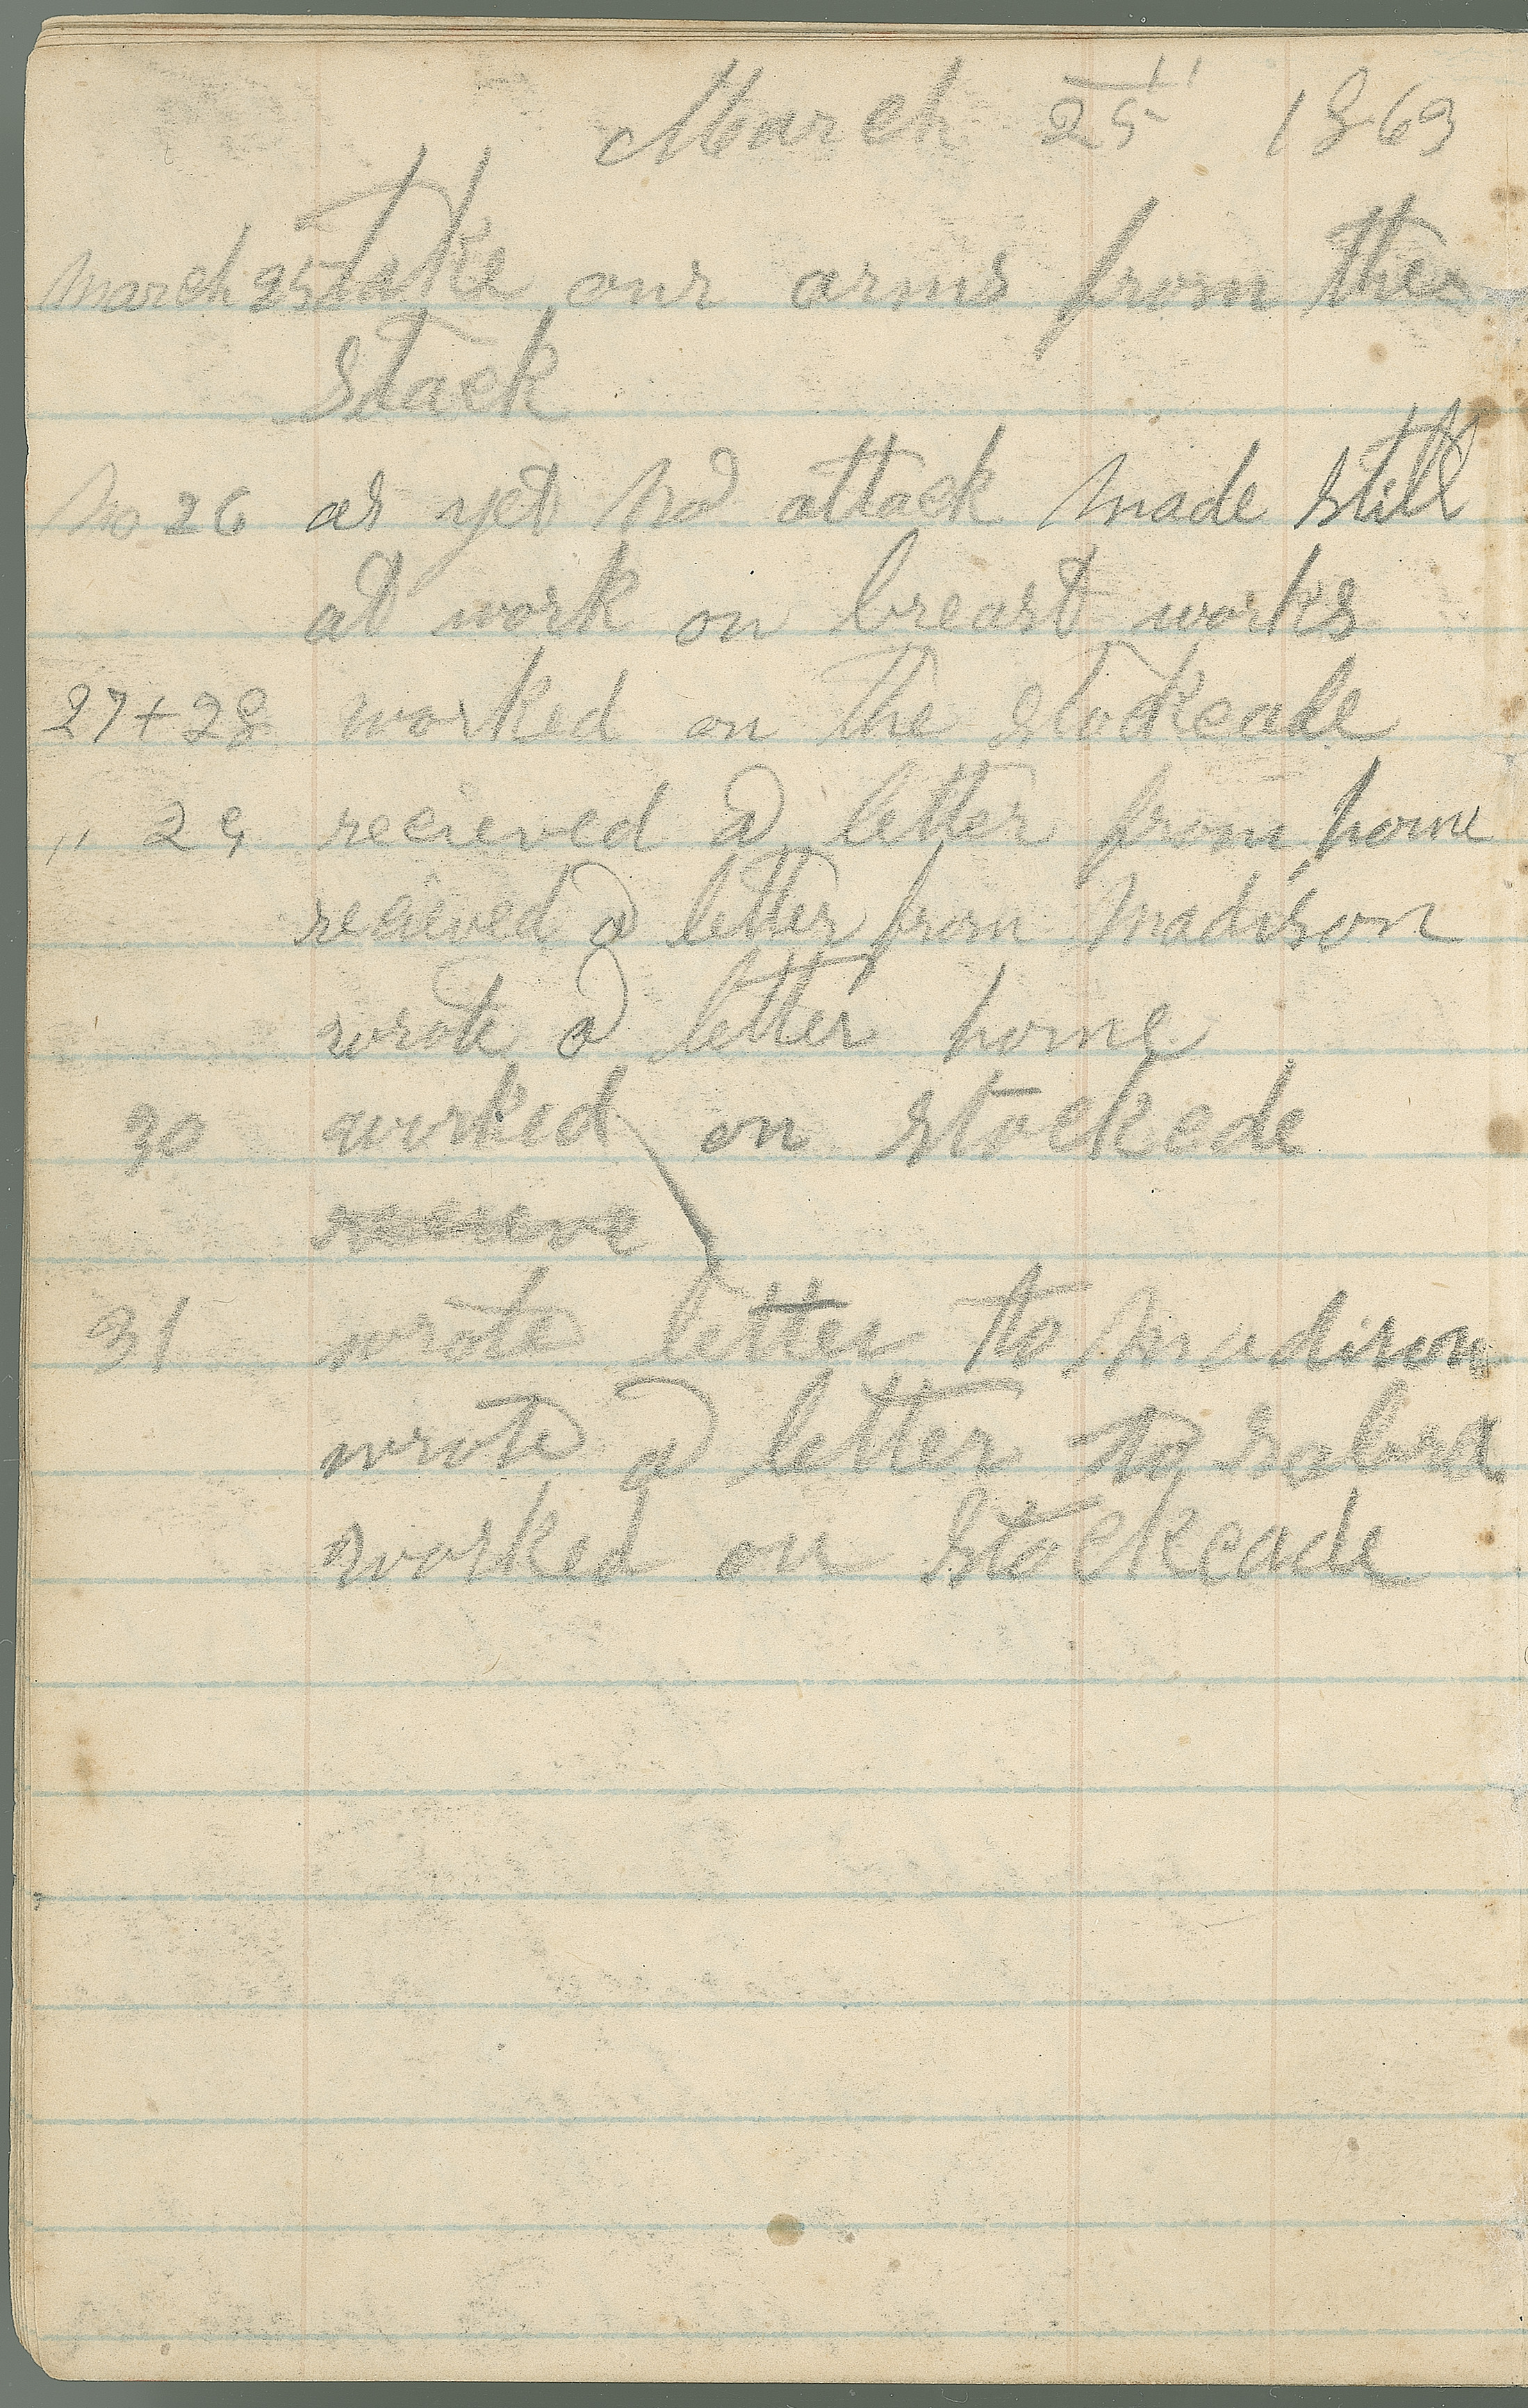 March 25 1863
March 25 take our arms from the
stack
M 26 as yet no attack made still
at work on breast works
27+28 worked on the stockeade
" 29 recieved a letter from home
recieved a letter from Madison
wrote a letter home
30 worked on stockede
31 wrote letter to Madison
wrote a letter to
worked on stockeade